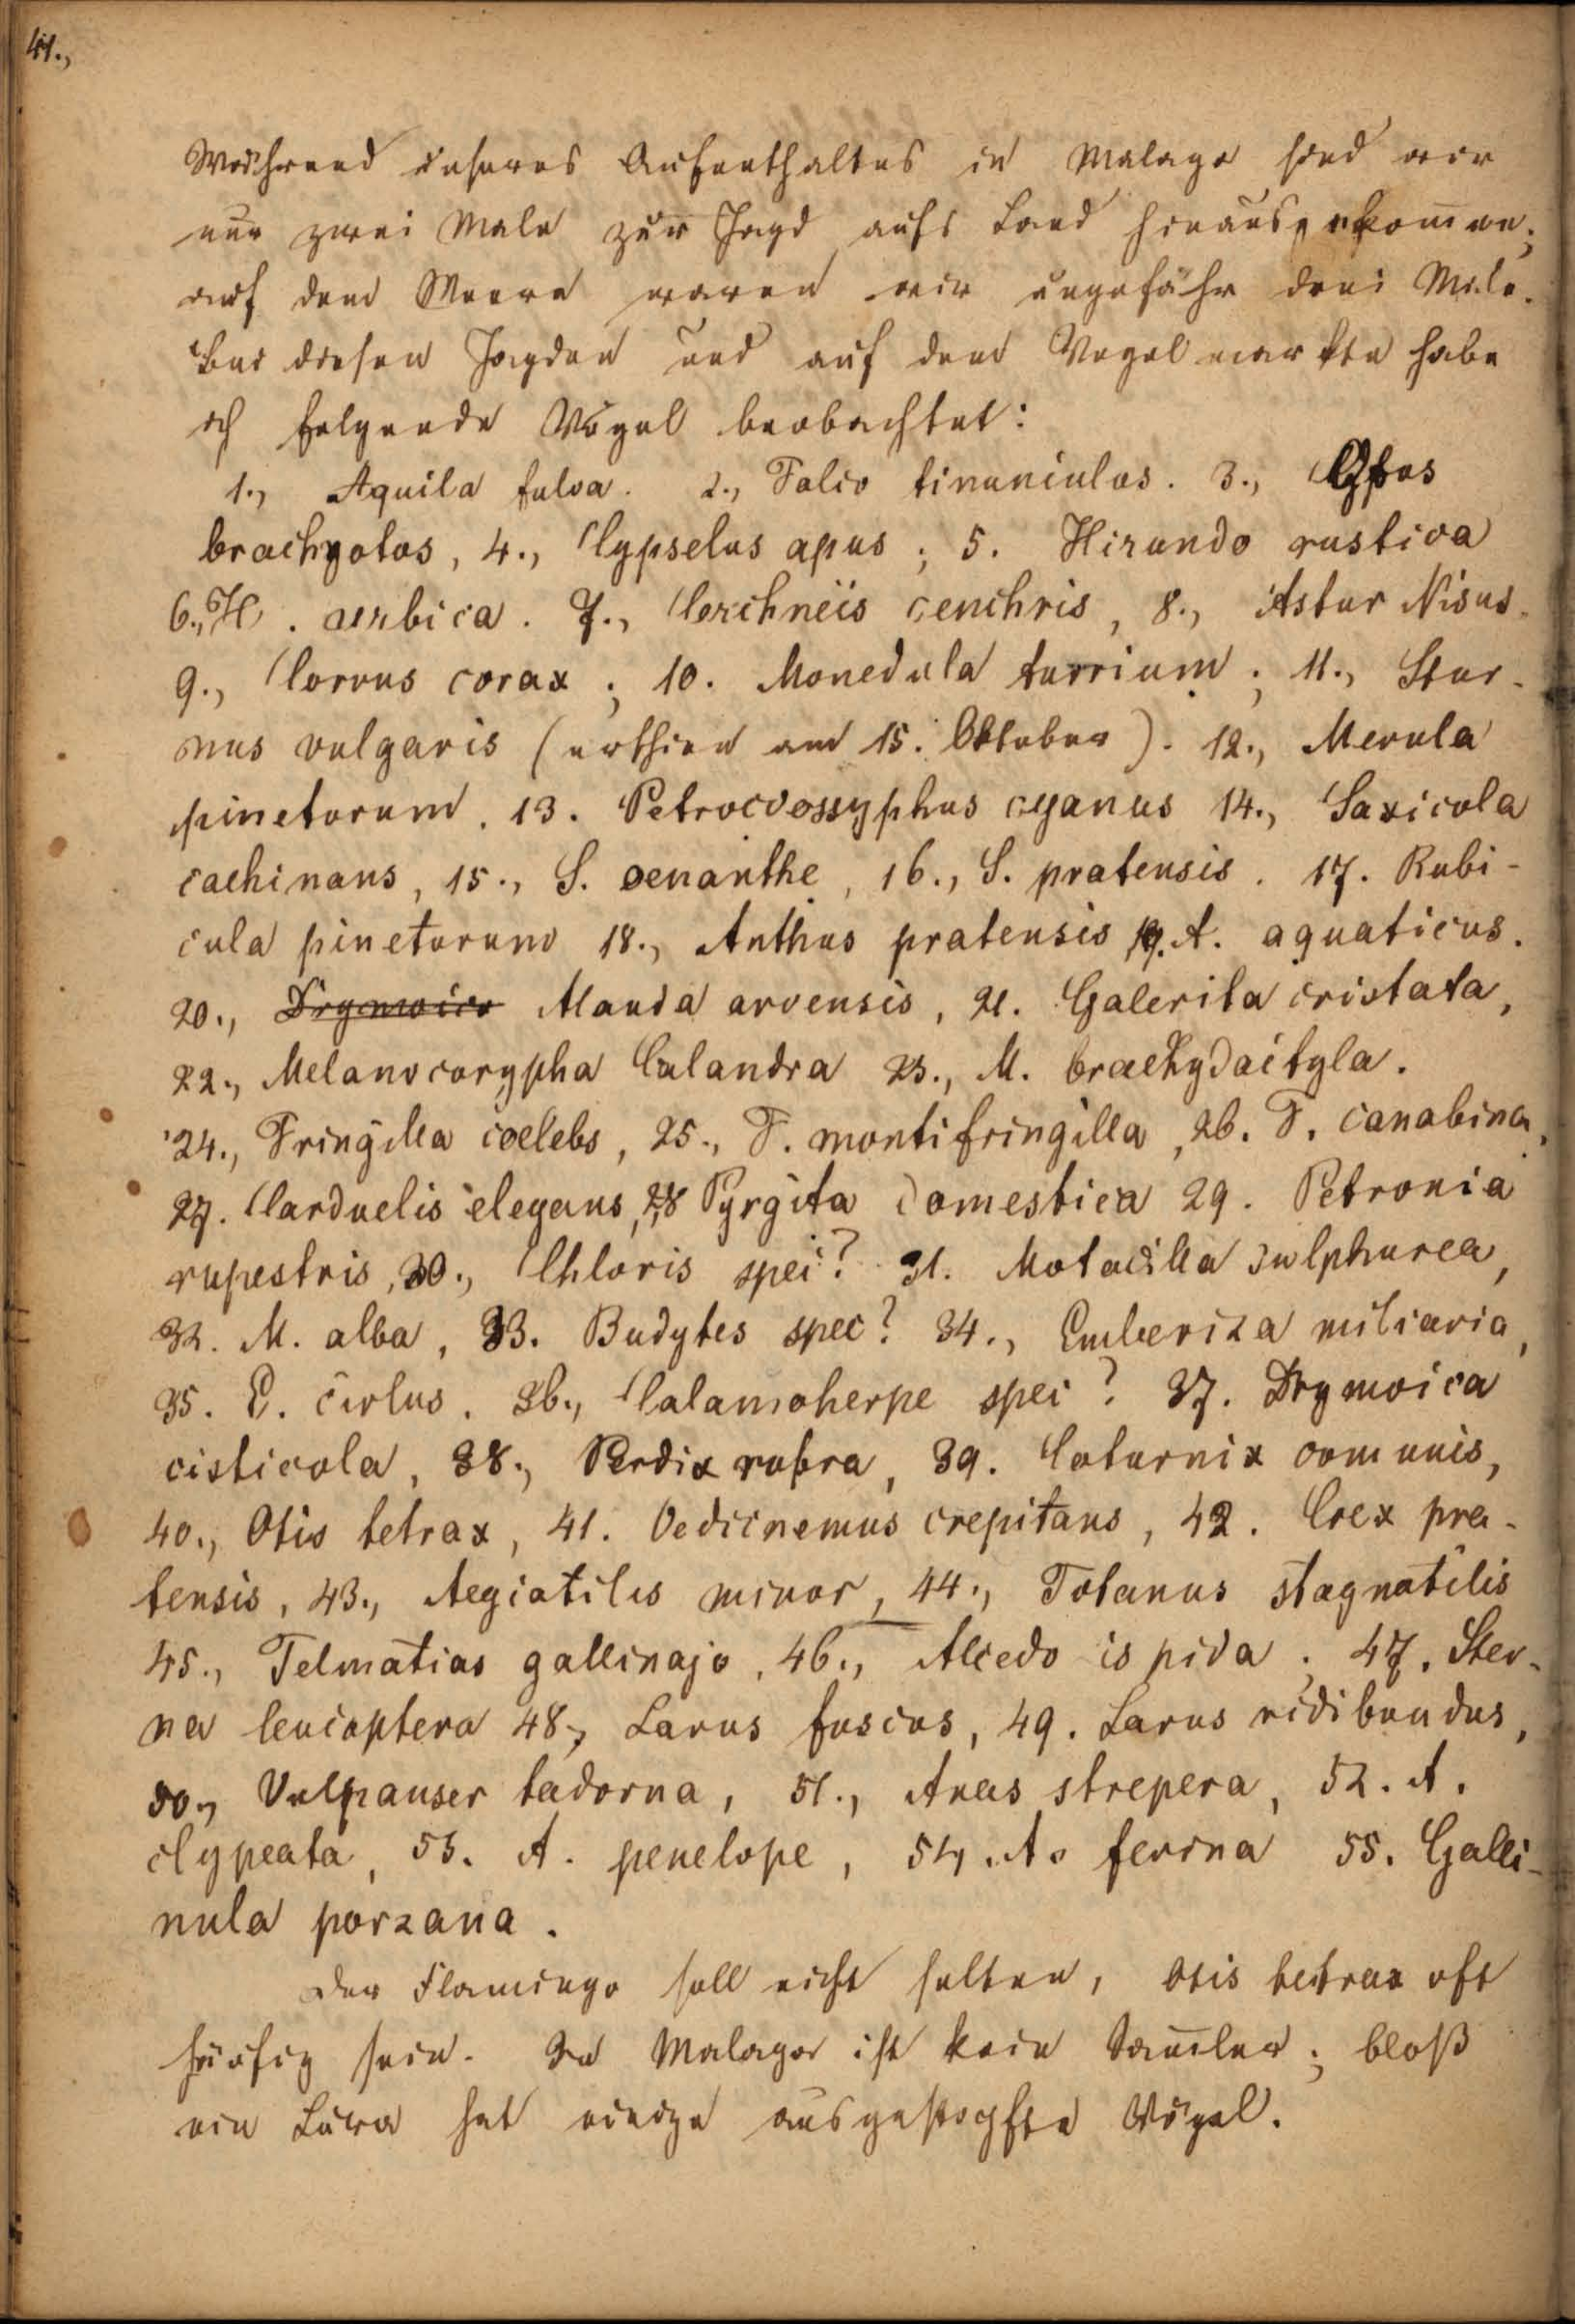 41.,
Während unseres Aufenthaltes in Malaga sind wir
nur zwei Male zur Jagd aufs Land hinausgekom̄en;
auf dem Meere waren wir ungefähr drei Male.
Bei diesen Jagden und auf dem Vogelmarkte habe
ich folgende Vögel beobachtet:
1., Aquila fulva. 2., Falco tinunculus. 3., Otus
brachyotos, 4., Cypselus apus; 5. Hirundo rustica
6., H. urbica. 7., Cerchneis cenchris, 8., Astur Nisus.
9., Corvus corax; 10. Monedula turrium; 11., Stur-
nus vulgaris (erschien am 15. Oktober). 12., Merula
pinetorum. 13. Petrocossyphus cyanus 14., Saxicola
cachinans, 15., S. oenanthe, 16., S. pratensis. 17. Rubi-
cula pinetorum 18., Anthus pratensis 19. A. aquaticus.
20., Drymoica Alauda arvensis, 21. Galerita cristata,
22., Melanocorypha Calandra 23., M. brachydactyla.
24., Fringilla coelebs, 25., F. montifringilla, 26. F. canabina,
27. Carduelis elegans, 28 Pyrgita domestica 29. Petronia
rupestris, 30., Chloris spec? 31. Motacilla sulphurea,
32. M. alba, 33. Budytes spec? 34., Emberiza miliaria,
35. E. cirlus. 36., Calamoherpe spec? 37. Drymoica
cisticola, 38., Perdix rubra, 39. Coturnix comunis,
40., Otis tetrax, 41. Oedicnemus crepitans, 42. Crex pra-
tensis, 43., Aegiatilis minor, 44., Totanus stagnatilis
45., Telmatias gallinago, 46., Alcedo ispida; 47. Ster-
na leucoptera 48., Larus fuscus, 49. Larus ridibundus,
50., Vulpanser tadorna, 51., Anas strepera, 52. A.
clypeata, 53. A. penelope, 54. A. ferina 55. Galli-
nula porzana.
Der Flamingo soll nicht selten, Otis tetrax oft
häufig sein. In Malaga ist kein Sam̄ler; bloß
ein hat einige ausgestopfte Vögel.